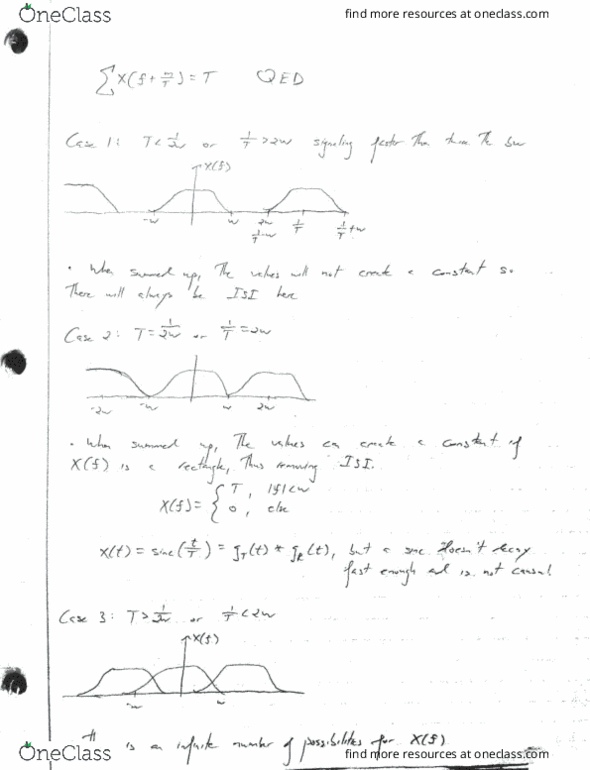 OneClass
find more resources at oneclass.com
∑X(f + m/T) = T QED
Case 1: T < 1/2w or 1/T > 2w signaling faster than twice the bw
X(f)
-w w 2w 1/T
1/T-w 1/T+w
• When summed up, The values will not create a constant so
There will always be ISI here
Case 2: T = 1/2w or 1/T = 2w
-2w -w w 2w
• When summed up, The values can create a constant if
X(f) is a rectangle, Thus removing ISI.
X(f) = { T, |f|<w
0, else
x(t) = sinc(t/T) = g_T(t) * g_R(t), but a sinc doesn't decay
fast enough and is not causal
Case 3: T > 1/2w or 1/T < 2w
X(f)
-w w
is an infinite number of possibilities for X(f)
OneClass
find more resources at oneclass.com